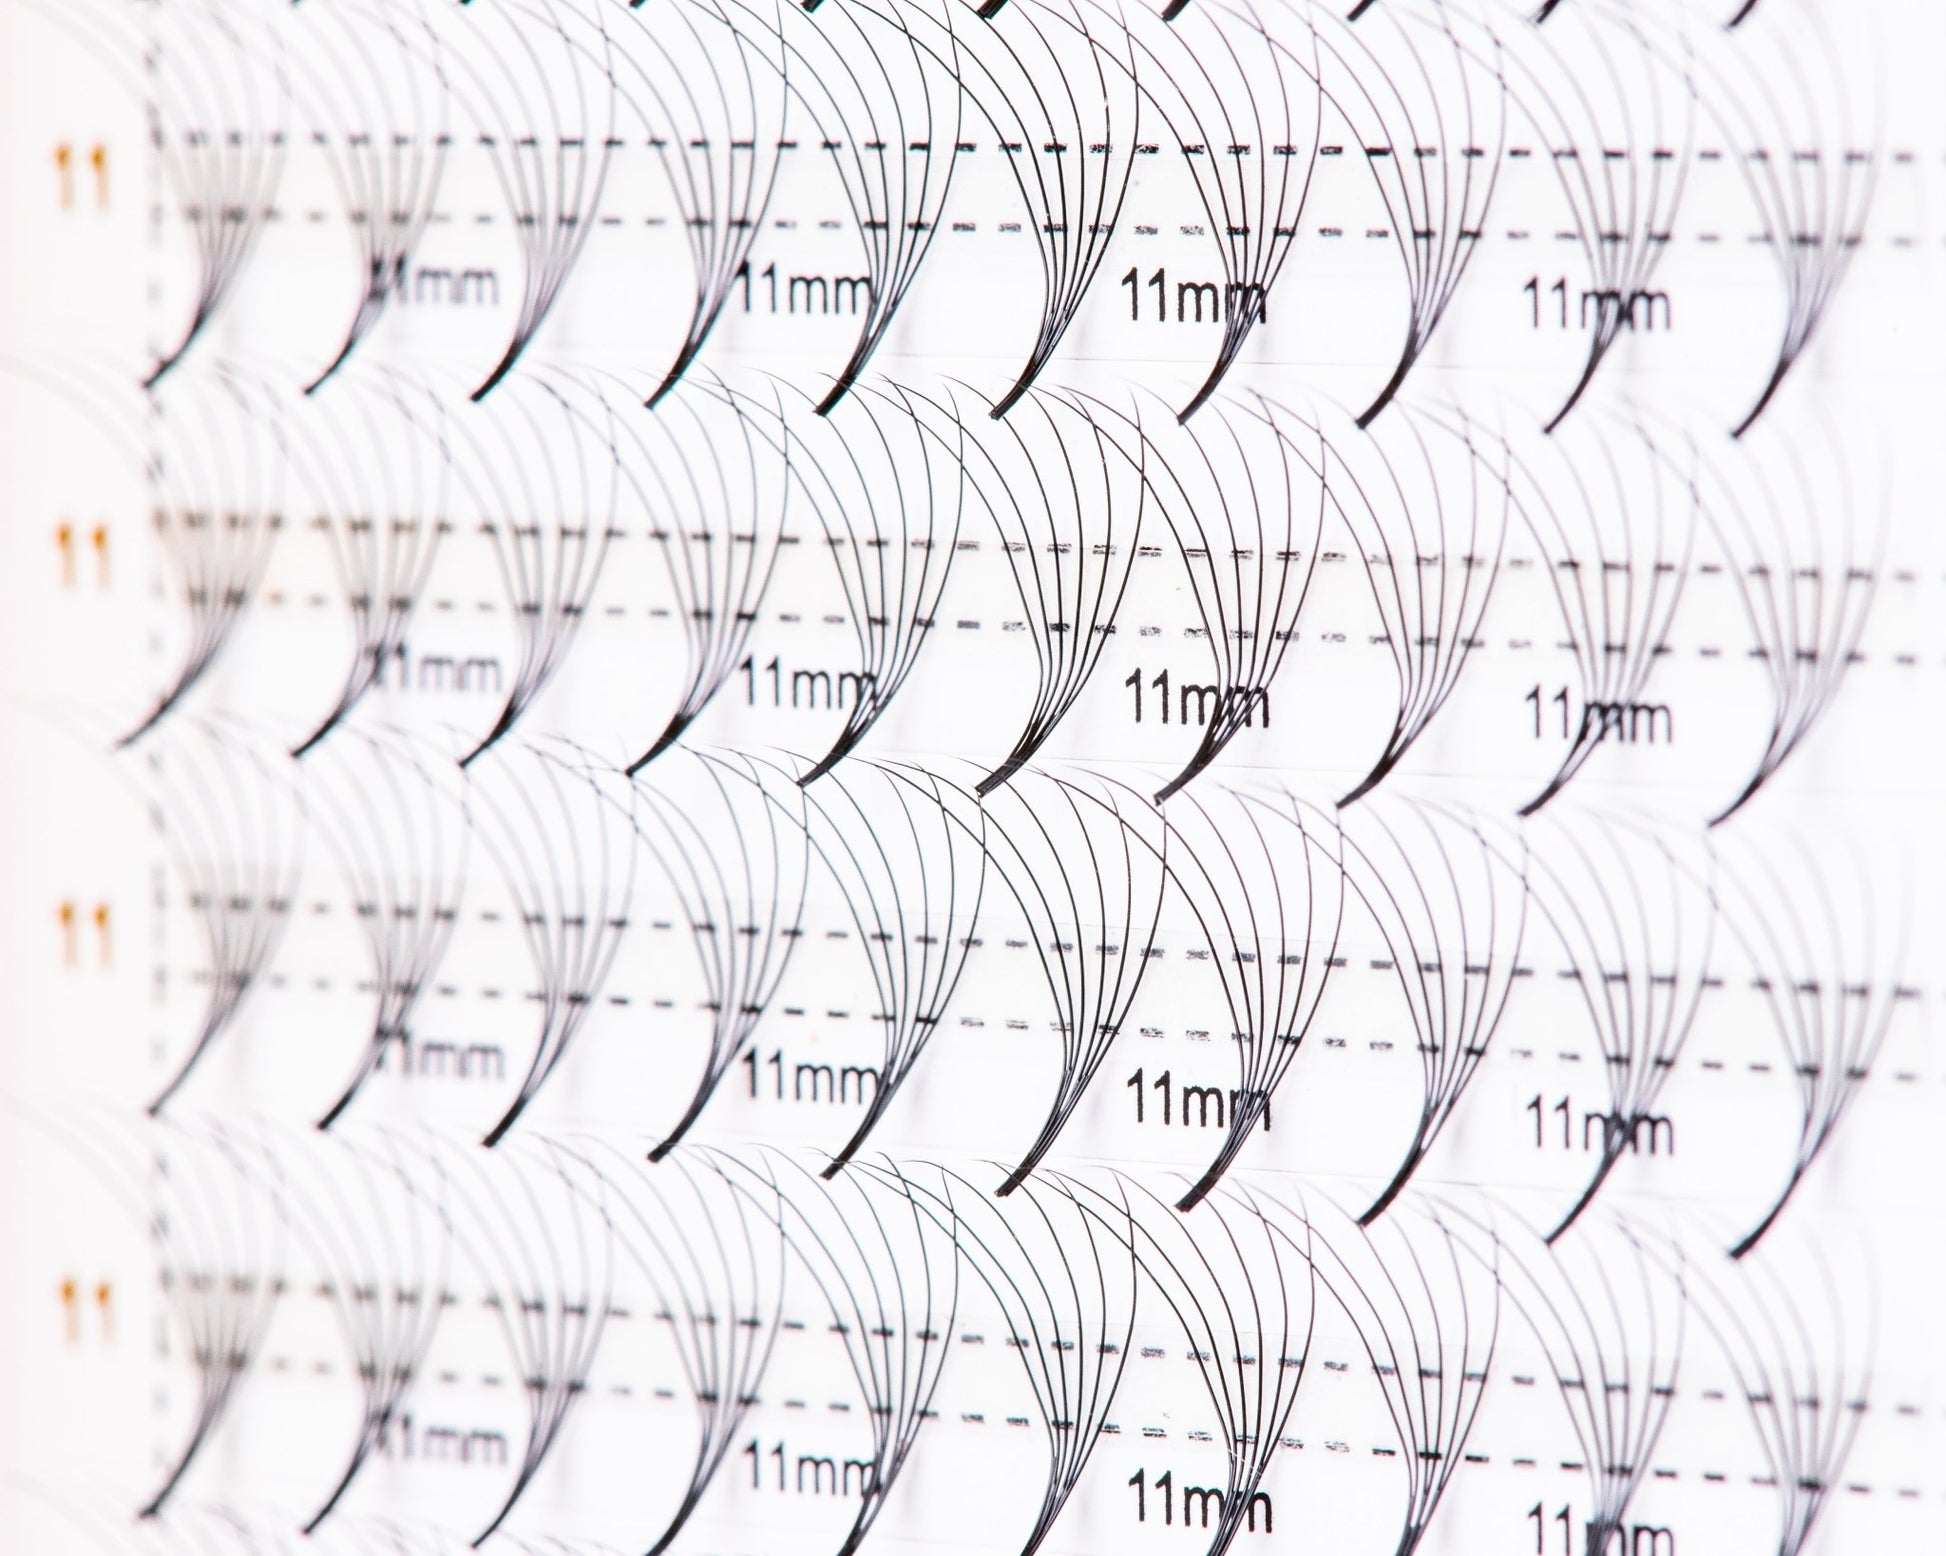 11 11mm 11mm 11mm 11mm
11 11mm 11mm 11mm 11mm
11 11mm 11mm 11mm 11mm
11 11mm 11mm 11mm 11mm